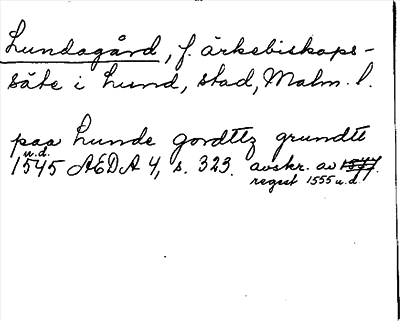 Lundagård, f. ärkebiskops-
säte i Lund, stad, Malm. l.
paa Lunde gordttz grundtt
u.d.
1545 AEDA 4, s. 323. avskr. av
regest 1555 u.d.